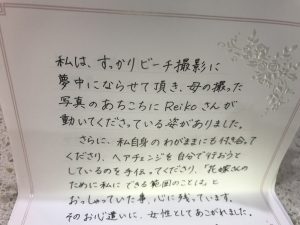 私は、すっかりビーチ撮影に
夢中にならせて頂き、母の撮った
写真のあちこちにReikoさんが
動いてくださっている姿がありました。
さらに、私自身のわがままにも付き合って
くださり、ヘアチェンジを自分で行おうと
しているのを手伝ってくださり、「花嫁さんの
ために私にできる範囲のことは。」と
おっしゃっていた事、心に残っています。
そのお心遣いに、女性としてあこがれました。